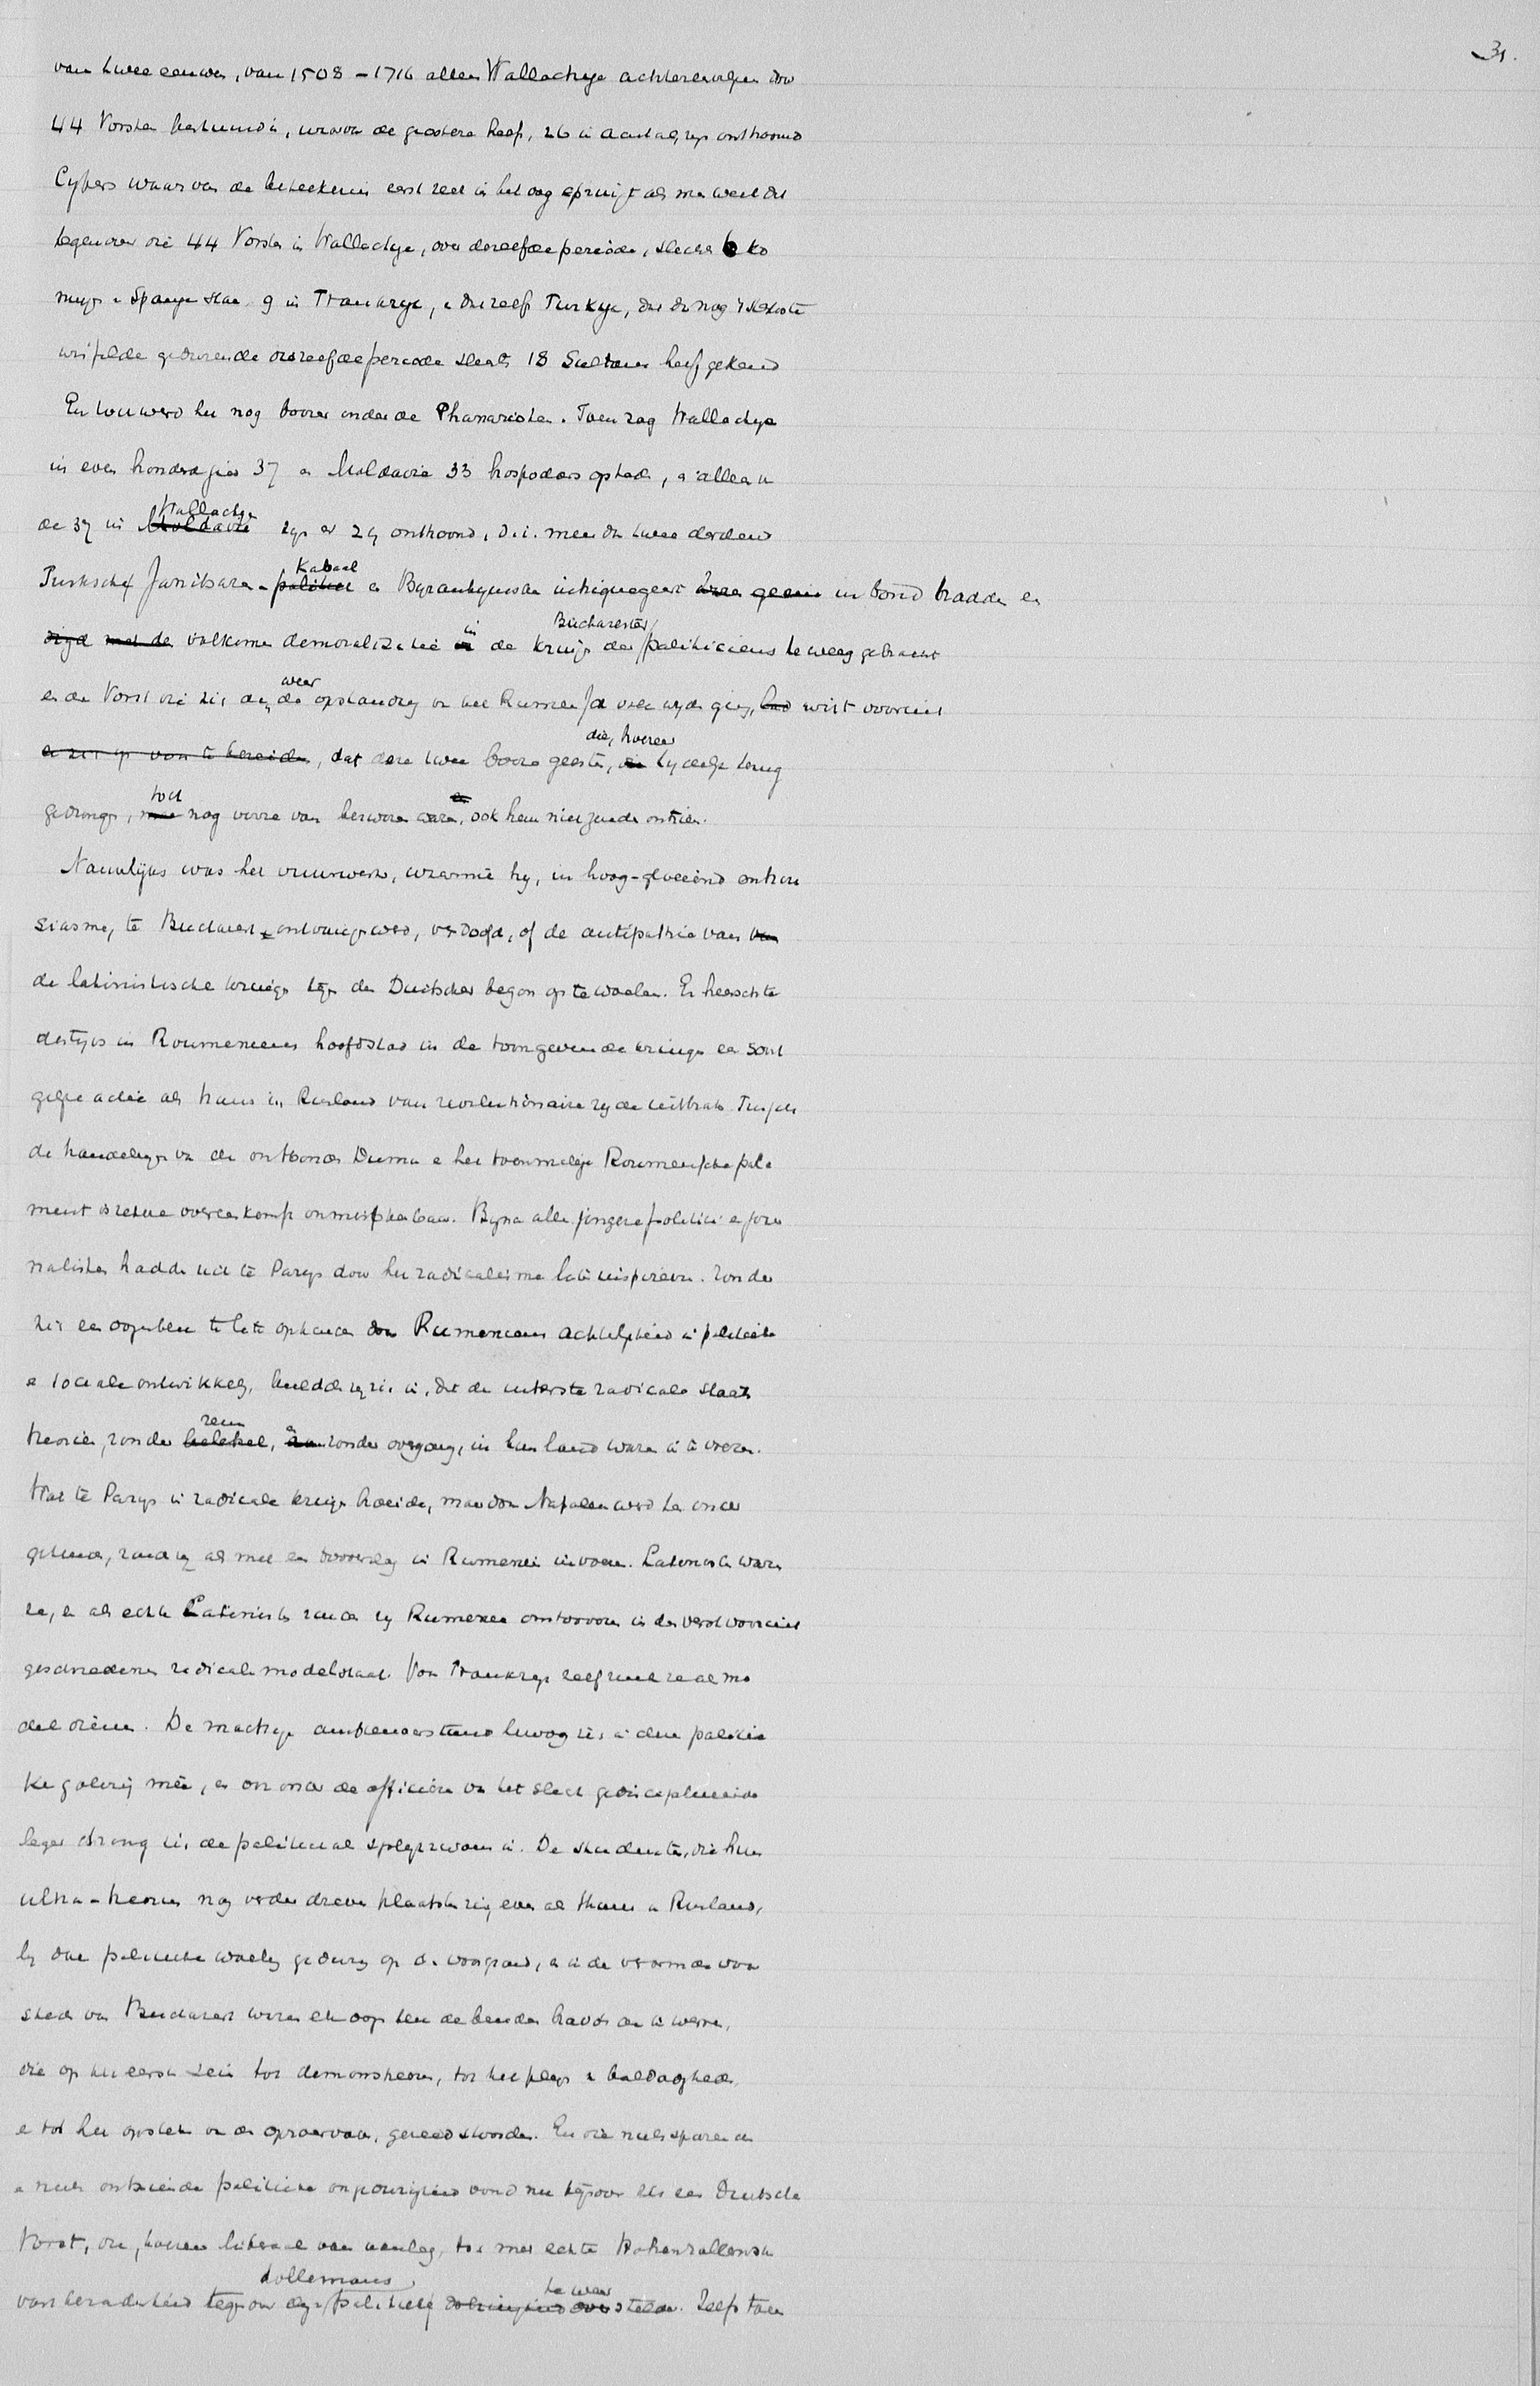 31.
van twee eeuwen, van 1508 - 1716 alleen Wallachye achtereenvolgens door
44 Vorsten bestuurd is, waarvan de grootere helft, 26 in aantal, zyn onttroond
Cyfers waarvan de beteekenis eerst recht in het oog springt als men weet dat
tegenover die 44 Vorsten in Wallachye, over dezelfde periode, slechts 6 ko
ningen in Spanje staan 9 in Frankryk, en dat zelfs Turkye, dat dan nog 't
wisselde gedurende diezelfde periode slechts 18 Sultans heeft gekend
En toen werd het nog boozer onder de Phanarioten. Toen zag Wallachye
in even honderd jaar 37 en Moldavie 33 hospodars optreden, en alleen van
de 37 in Wallachye zyn er 29 onttroond, d.i. meer dan twee derden
Turksche Janitsaren-Kabaal en Byzantynsche intriguegeest in bond hadden een
volkomen demoralisatie in de kringen der Bucharester politiciens te weeg gebracht
en de Vorst die zich aan de weer opstanding van het Rumeensche volk wyden ging, wist vooruit
, dat deze twee booze geesten, die, hoezeer tydelyk terug
gedrongen, toch nog verre van bezworen waren, ook hem niet zouden ontzien.
Nauwlijks was het vuurwerk, waarmee hy, in hoog-gloeiend enthou
siasme, te Bucharest ontvangen werd, verdoofd, of de antipathie van
de latinistische kringen tegen den Duitscher begon op te woelen. Er heerschte
destyds in Roumeniens hoofdstad in de toongevende kringen een soort
gelyke actie als thans in Rusland van revolutionaire zyde uitbrak. Tusschen
de handelingen van de ontbonden Duma en het toenmalige Roumeensche parle
ment is zekere overeenkomst onmiskenbaar. Byna alle jongere politici en jour
nalisten hadden zich te Parys door het radicalisme laten inspireeren. Zonder
zich een oogenblik te laten ophouden door Rumeniens achterlykheid in politieke
en sociale ontwikkeling, beeldden zy zich in, dat de uiterste radicale staats
theorieën, zonder rem, en zonder overgang, in hun land waren in te voeren.
Wat te Parys in radicale kringen broeide, maar door Napoleon werd ten onder
gehouden, zouden zy als met een tooverslag in Rumenie invoeren. Latinisten waren
ze, en als echte Latinisten zouden zy Rumenie omtooveren in den verst vooruit
geschredenen radicalen modelstaat. Voor Frankryk zelf zoude ze als mo
del dienen. De machtige ambtenaarsstand bewoog zich in deze politie
ke galery mee, en ook onder de officieren van het slecht gedisciplineerde
leger drong zich de politiek als splytzwam in. De studenten, die hun
ultra-theorieën nog verder dreven plaatsten zich, even als thans in Rusland,
by deze politieke woeling gedurig op den voorgrond, en in de vermaarde voor
steden van Bucharest waren elk oogenblik de benden haveloozen te werven,
die op het eerste sein tot demonstreeren, tot het plegen van baldadigheden
en tot het opsteken van de oproervaan, gereed stonden. En die niets sparende
en niets ontziende politieke ongedurigheid vond nu tegenover zich een Duitsche
Vorst, die, hoezeer liberaal van aanleg, toch met echte Hohenzollernsche
vastberadenheid tegenover deze politieke dollemans te weer stelde. Zelfs toen